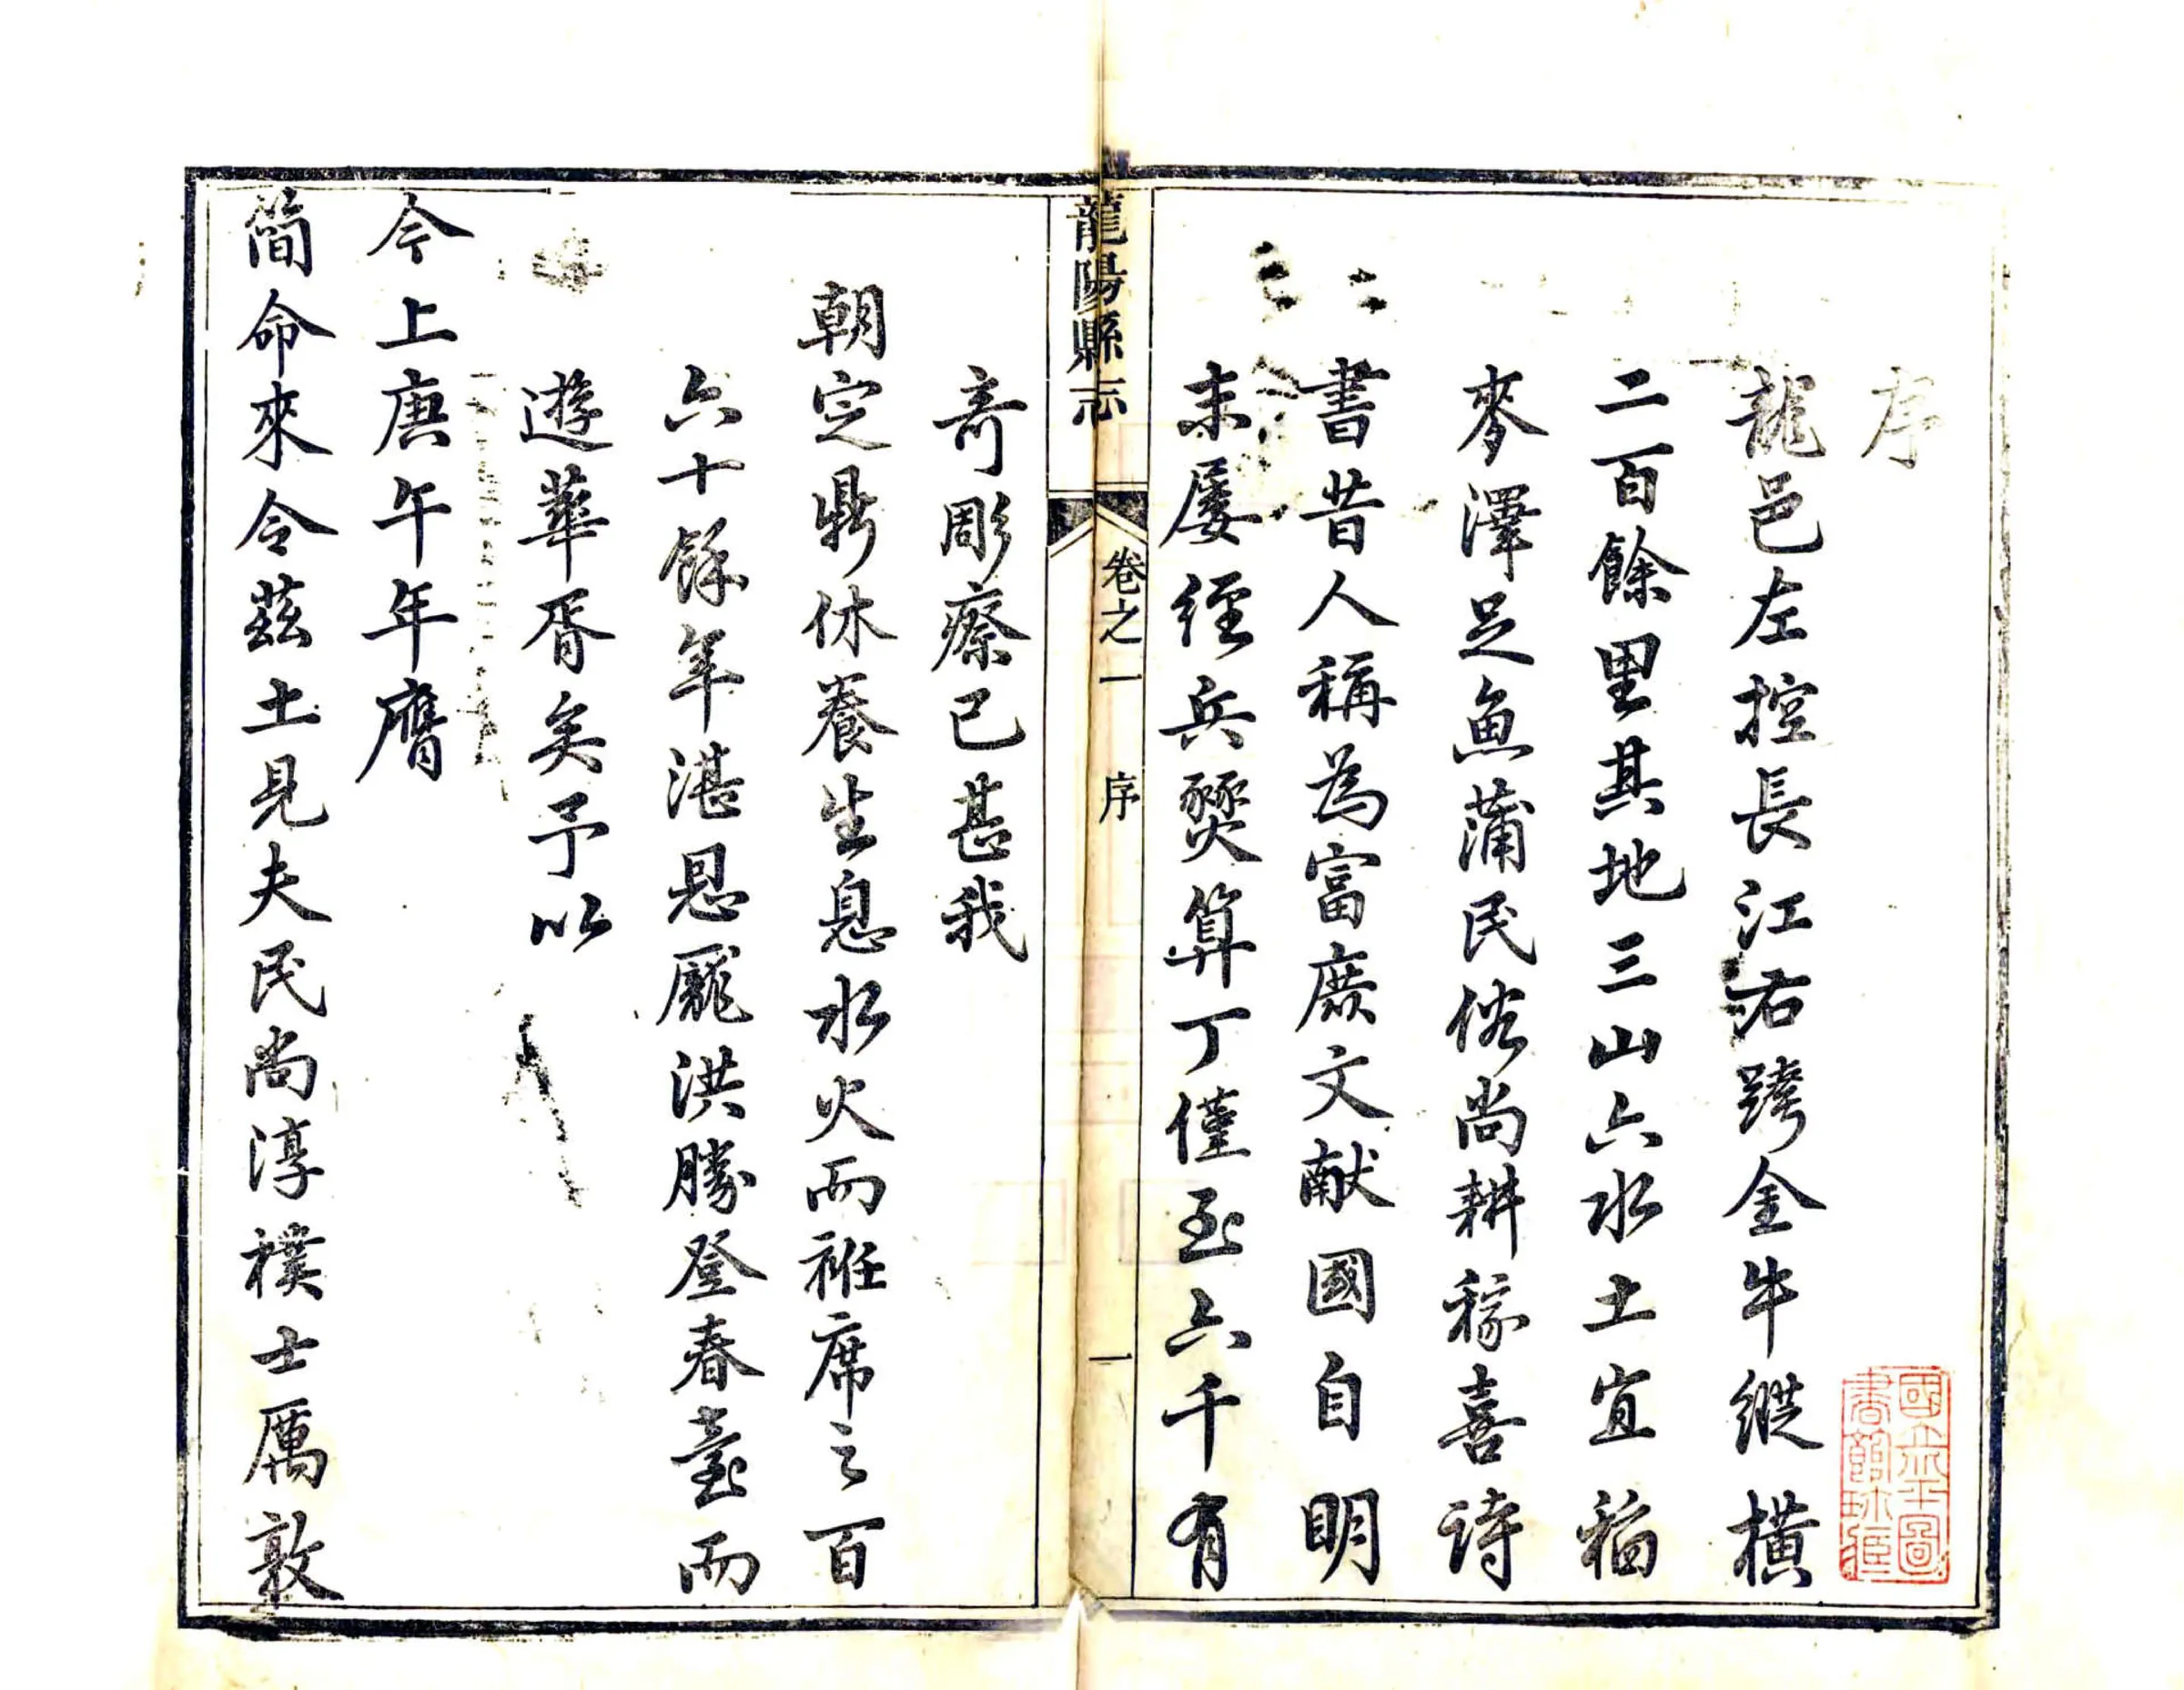 序
龍邑左控長江右跨金牛縱橫
二百餘里其地三山六水土宜稻
麥澤足魚蒲民俗尚耕稼喜詩
書昔人稱為富庶文献國自明
末屡經兵燹算丁僅至六千有
龍陽縣志 卷之一 序 一
奇彫瘵已甚我
朝定鼎休養生息水火而袵席之百
六十餘年湛恩龐洪勝登春臺而
遊華胥矣予以
今上庚午年膺
簡命來令茲土見夫民尚淳樸士厲敦
國立北平圖
書館珍藏